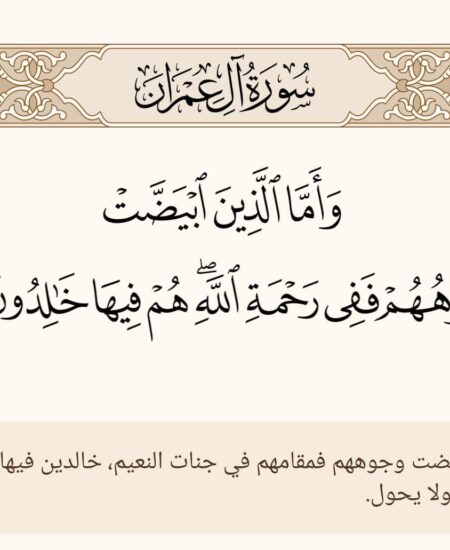 سُورَةُ آلِ عِمْرَانَ
وَأَمَّا ٱلَّذِينَ ٱبْيَضَّتْ
فَفِى رَحْمَةِ ٱللَّهِۖ هُمْ فِيهَا خَٰلِدُونَ
وجوههم فمقامهم في جنات النعيم، خالدين فيها
ولا يحول.